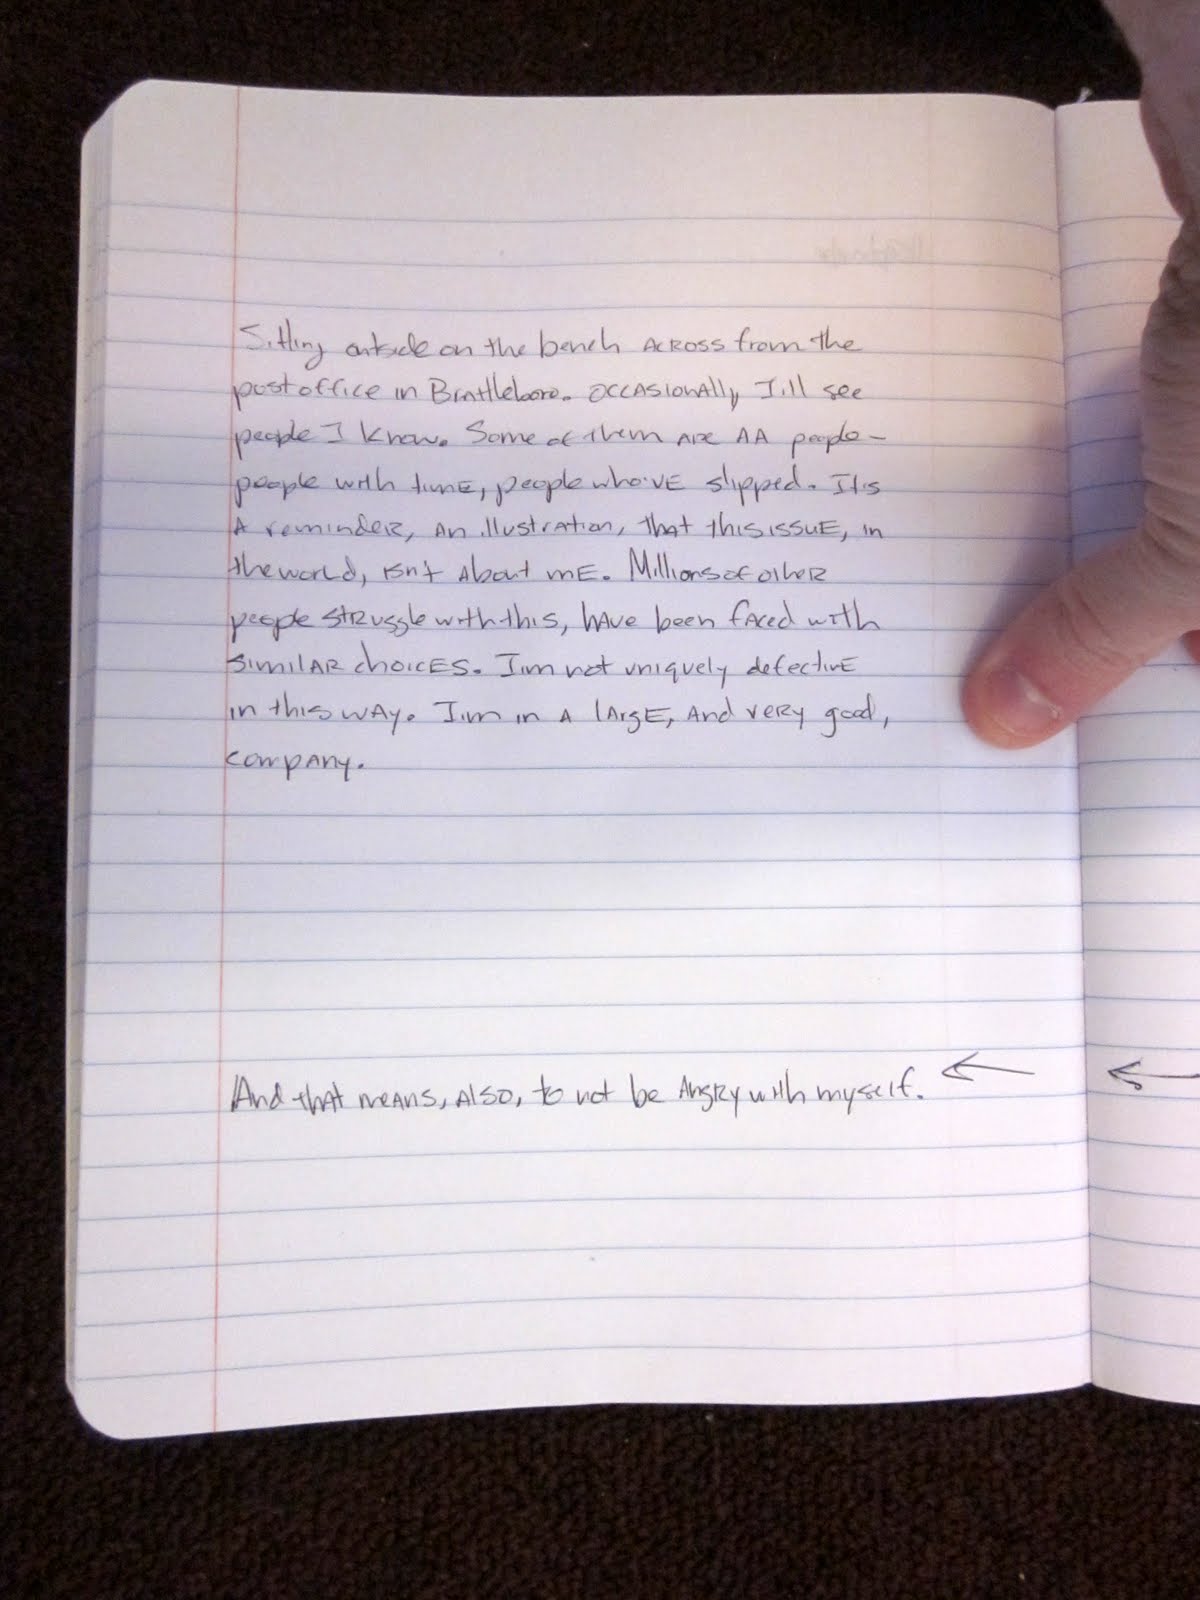 Sitting outside on the bench across from the
post office in Brattleboro. Occasionally, I'll see
people I know. Some of them are AA people-
people with time, people who've slipped. It's
a reminder, an illustration, that this issue, in
the world, isn't about me. Millions of other
people struggle with this, have been faced with
similar choices. I'm not uniquely defective
in this way. I'm in a large, and very good,
company.
And that means, also, to not be angry with myself.